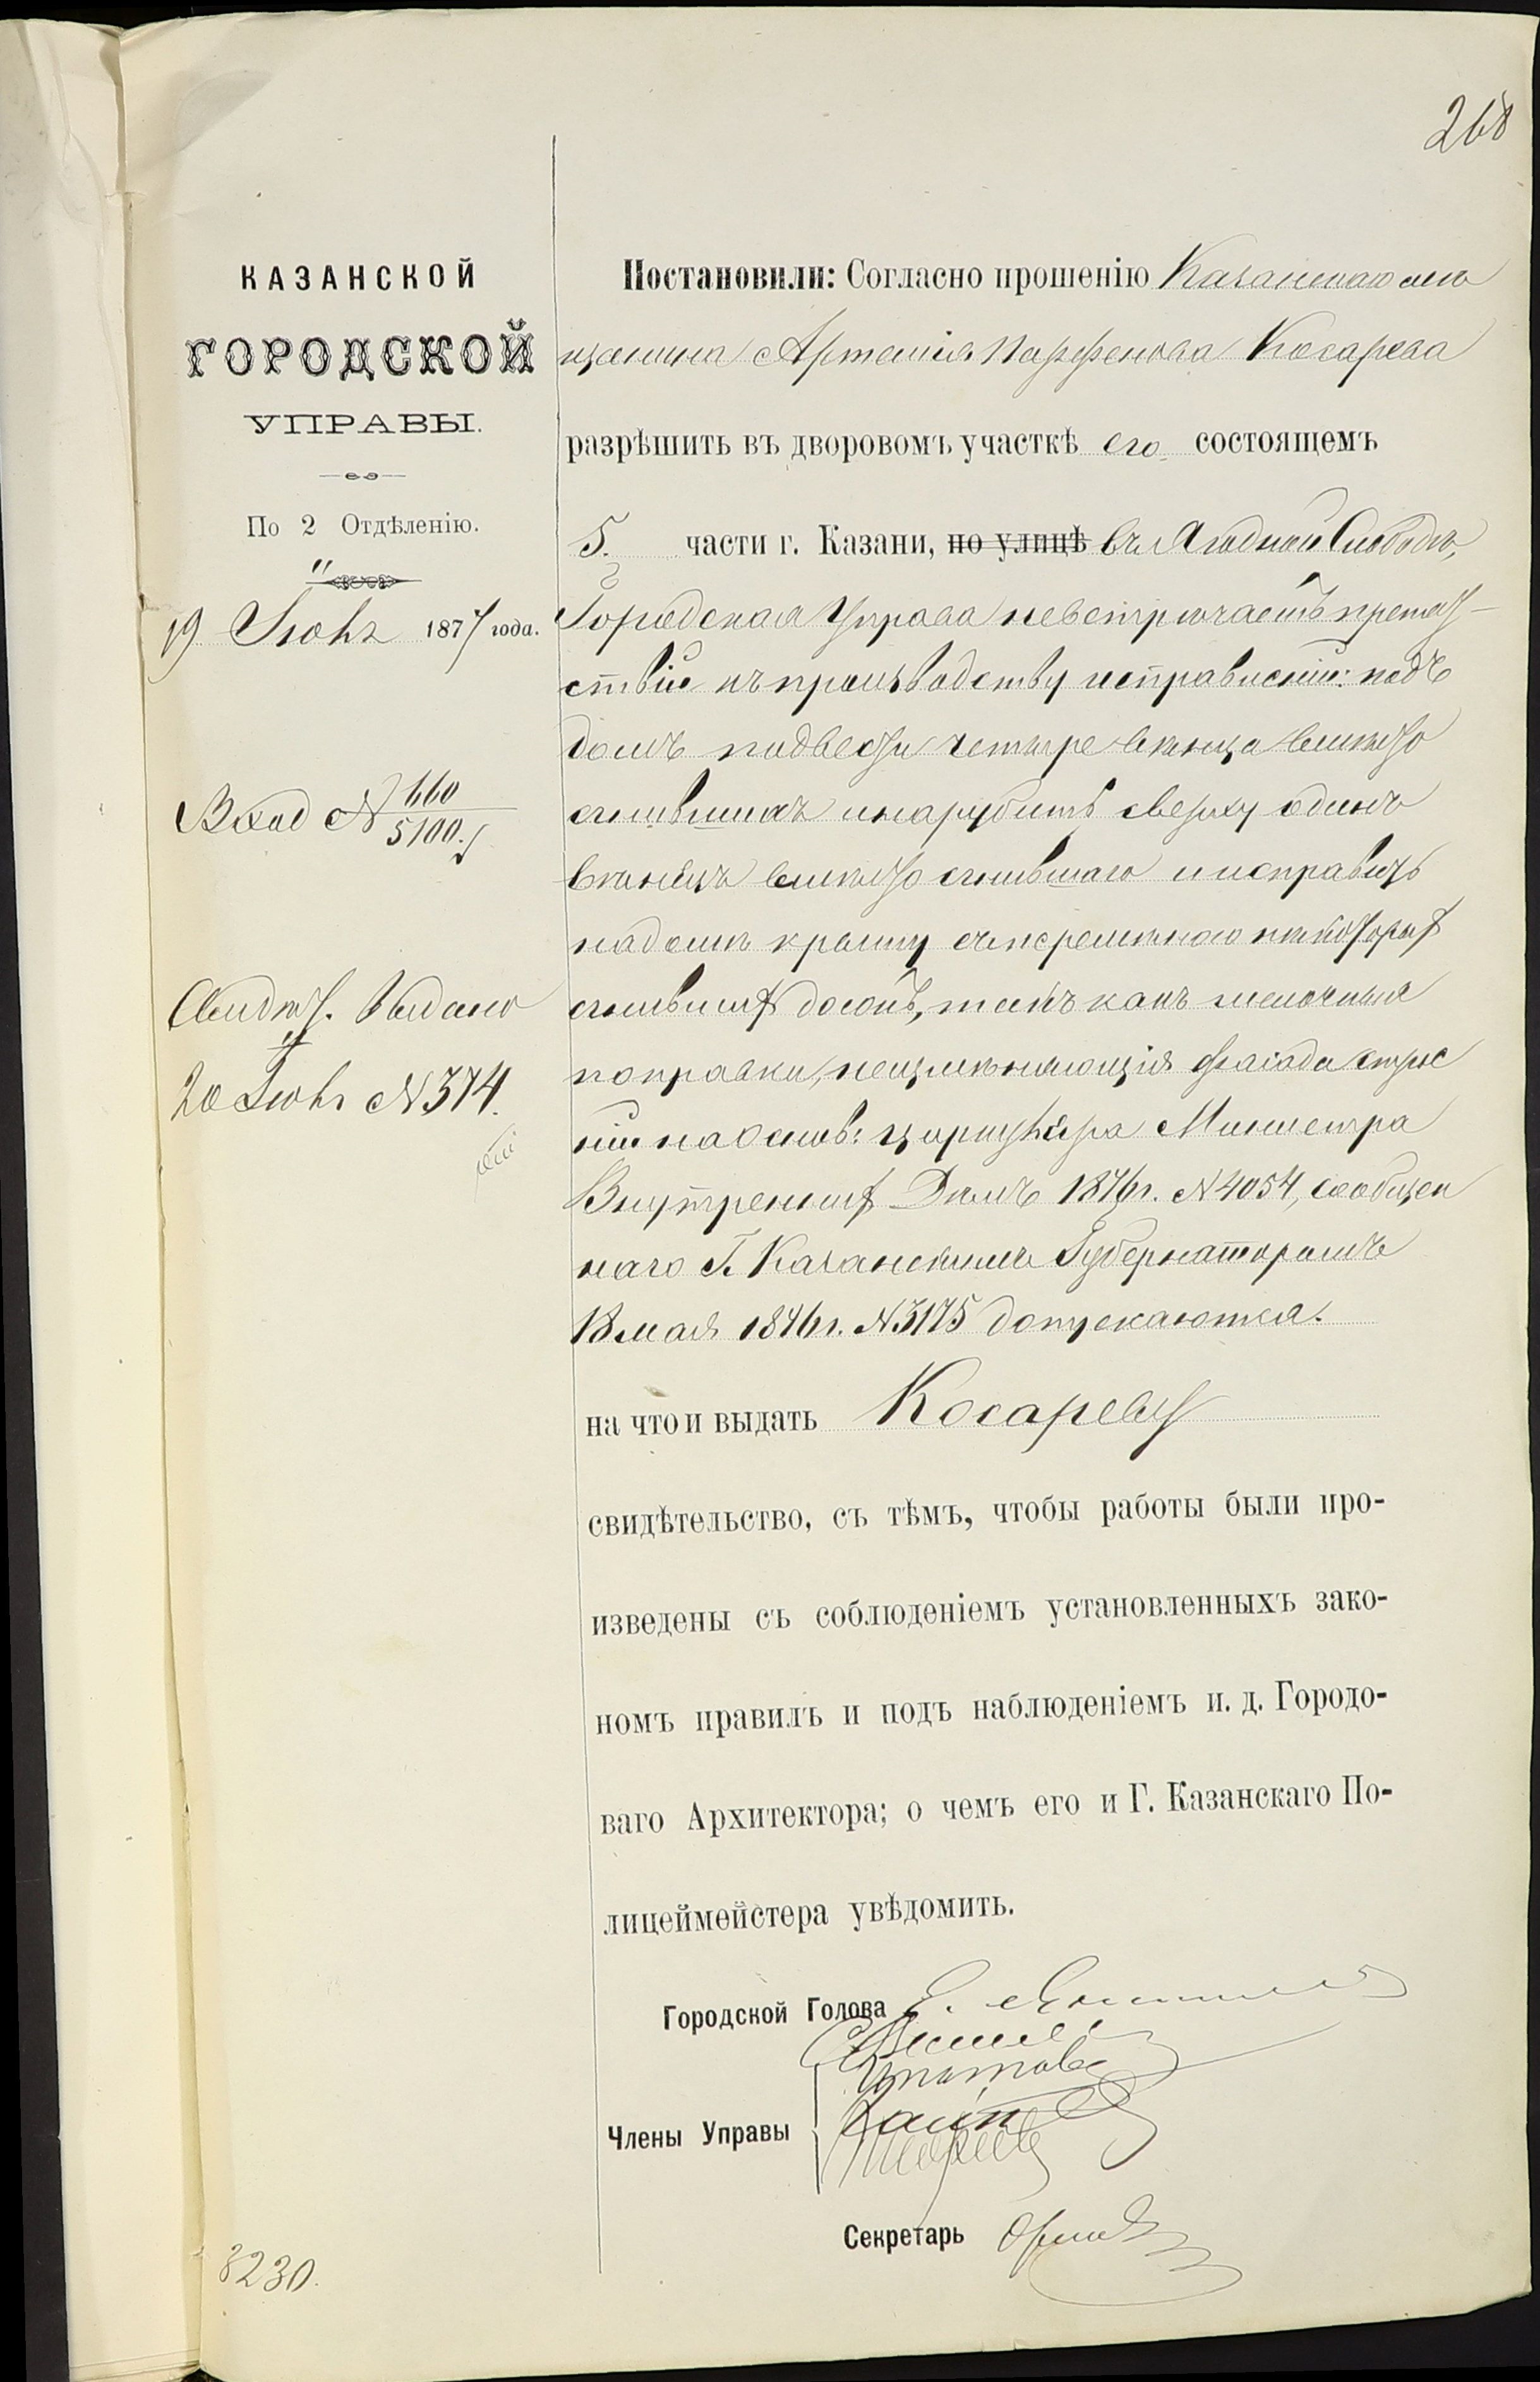 268
КАЗАНСКОЙ
ГОРОДСКОЙ
УПРАВЫ.
По 2 Отдѣленію.
19 Іюня 1877 года.
Вход №660/5100.
Свидѣт. Выдано
20 Іюня №374.
Постановили: Согласно прошенію Казанскаго мѣ
щанина Артемія Парфенова Косарева
разрѣшить въ дворовомъ участкѣ его состоящемъ
5. части г. Казани, по улицѣ въ Ягодной Слободѣ,
Городская Управа невстрѣчаетъ препят-
ствій къ производству исправленій: подъ
домъ подвести четыре вѣнца вмѣсто
сгнившихъ и нарубить сверху одинъ
вѣнецъ вмѣсто сгнившаго и исправить
на домѣ крышу съ перемѣною нѣкоторых
сгнивших досокъ, такъ какъ мелочныя
поправки, неизмѣняющія фасада строе
ній на основ: циркуляра Министра
Внутренних Дѣлъ 1876 г. №4054, сообщен
наго Г. Казанскимъ Губернаторомъ
18 мая 1876 г. №3175 допускаются.
на что и выдать Косареву
свидѣтельство, съ тѣмъ, чтобы работы были про-
изведены съ соблюденіемъ установленныхъ зако-
номъ правилъ и подъ наблюденіемъ и. д. Городо-
ваго Архитектора; о чемъ его и Г. Казанскаго По-
лицеймейстера увѣдомить.
Городской Голова
Члены Управы
Ипатовъ
Секретарь
3230.